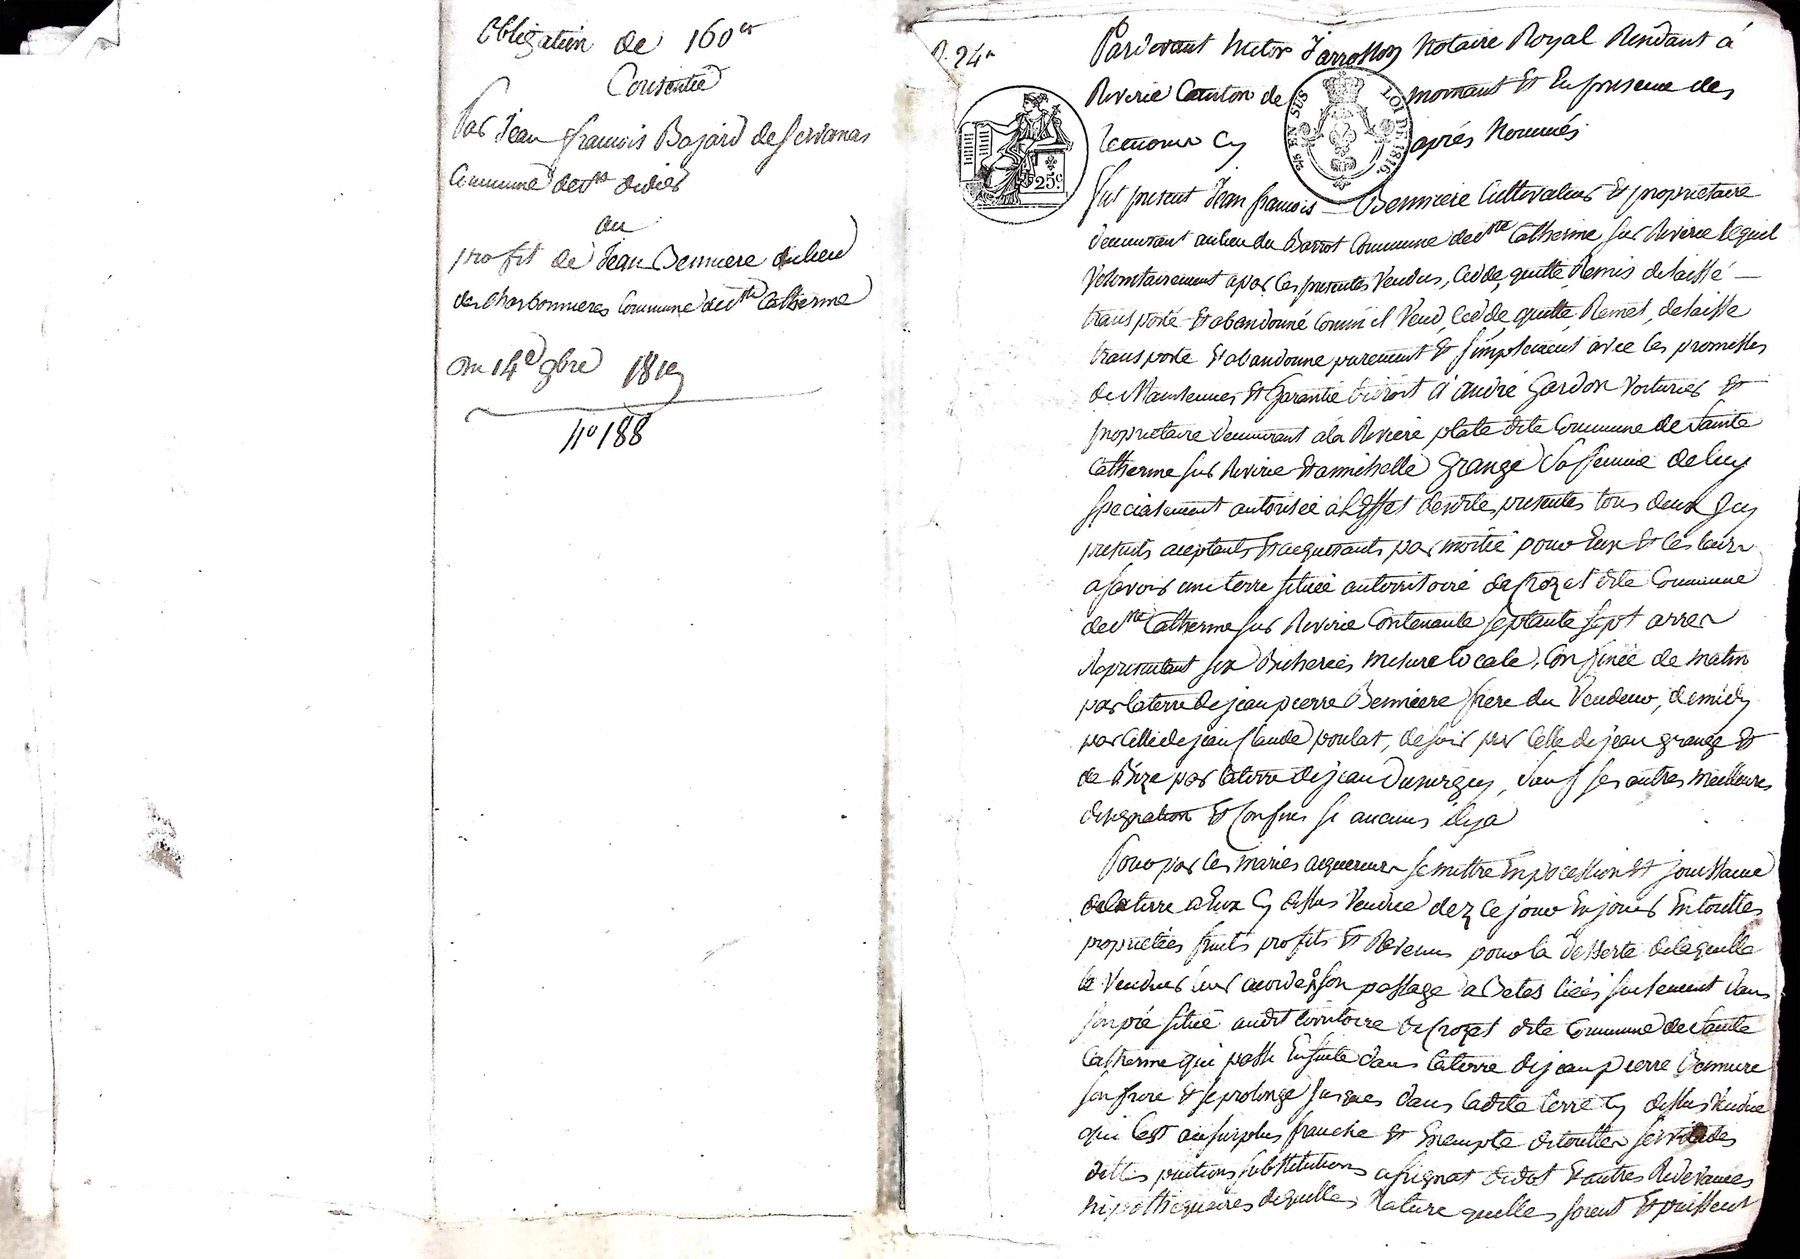 Obligation de 160 fr
Consentie
Par Jean francois Bajard de
Commune de St didier
au
profit de Jean Bennière du lieu
des charbonnieres Commune de Ste Catherine
Du 14e 9bre 1819
No 188
24
Pardevant victor Jarrosson Notaire Royal Résidant à
Riverie Canton de mornant Et En présence des
temoins Cy après Nommés
25 EN SUS LOI DE 1816.
25c
fut présent Jean francois Bennière Cultivateur Et proprietaire
demeurant au lieu du Barrot Commune de Ste Catherine sur Riverie lequel
volontairement a par Ces presentes vendus, Cedde, quitté, Remis delaissé
transporté Et abandonné Comm'il Vend, Cedde, quitte, Remet, delaisse
transporte Et abandonne purement Et simplement avec les promesses
de Maintenue Et Garantie de droit à andré Gardon Voiturier Et
proprietaire demeurant à la Riviere plate dite Commune de Sainte
Catherine sur Riverie Et a michelle Grange sa femme de luy
specialement autorisée à L'Effet des dites presentes tous deux Icy
presents aceptants Et acquerants par moitié pour Eux Et les leurs
a savoir une terre située au territoire de Crozet dite Commune
de Ste Catherine sur Riverie Contenante septante sept arres
Représentant six Bicherées mesure locale, Confinée de matin
par la terre de jean pierre Bennière frere du Vendeur, de midy
par Celle de jean Claude poulat, de soir par Celle de jean grange Et
de Bize par la terre de jean Duvergey, sauf ses autres meilleures
designation Et Confins si aucuns il y a
Pour par les mariés acquereurs se mettre En pocession Et jouissance
de la terre a Eux Cy dessus Vendue dez Ce jour En jours En touttes
proprietées fruits profits Et Revenus pour la desserte de laquelle
le Vendeur leur acorde son passage a Betes liées seulement dans
son pré situé audit territoire de Crozet dite Commune de Sainte
Catherine qui passe Ensuite dans la terre de jean pierre Bennière
son frere Et se prolonge jusques dans la dite terre Cy dessus Vendue
qui Est au surplus franche Et Exempte de touttes servitudes
dettes substitutions assignat de dot Et autres Redevances
hipothequaires de quelles Nature quelles soient Et puissent